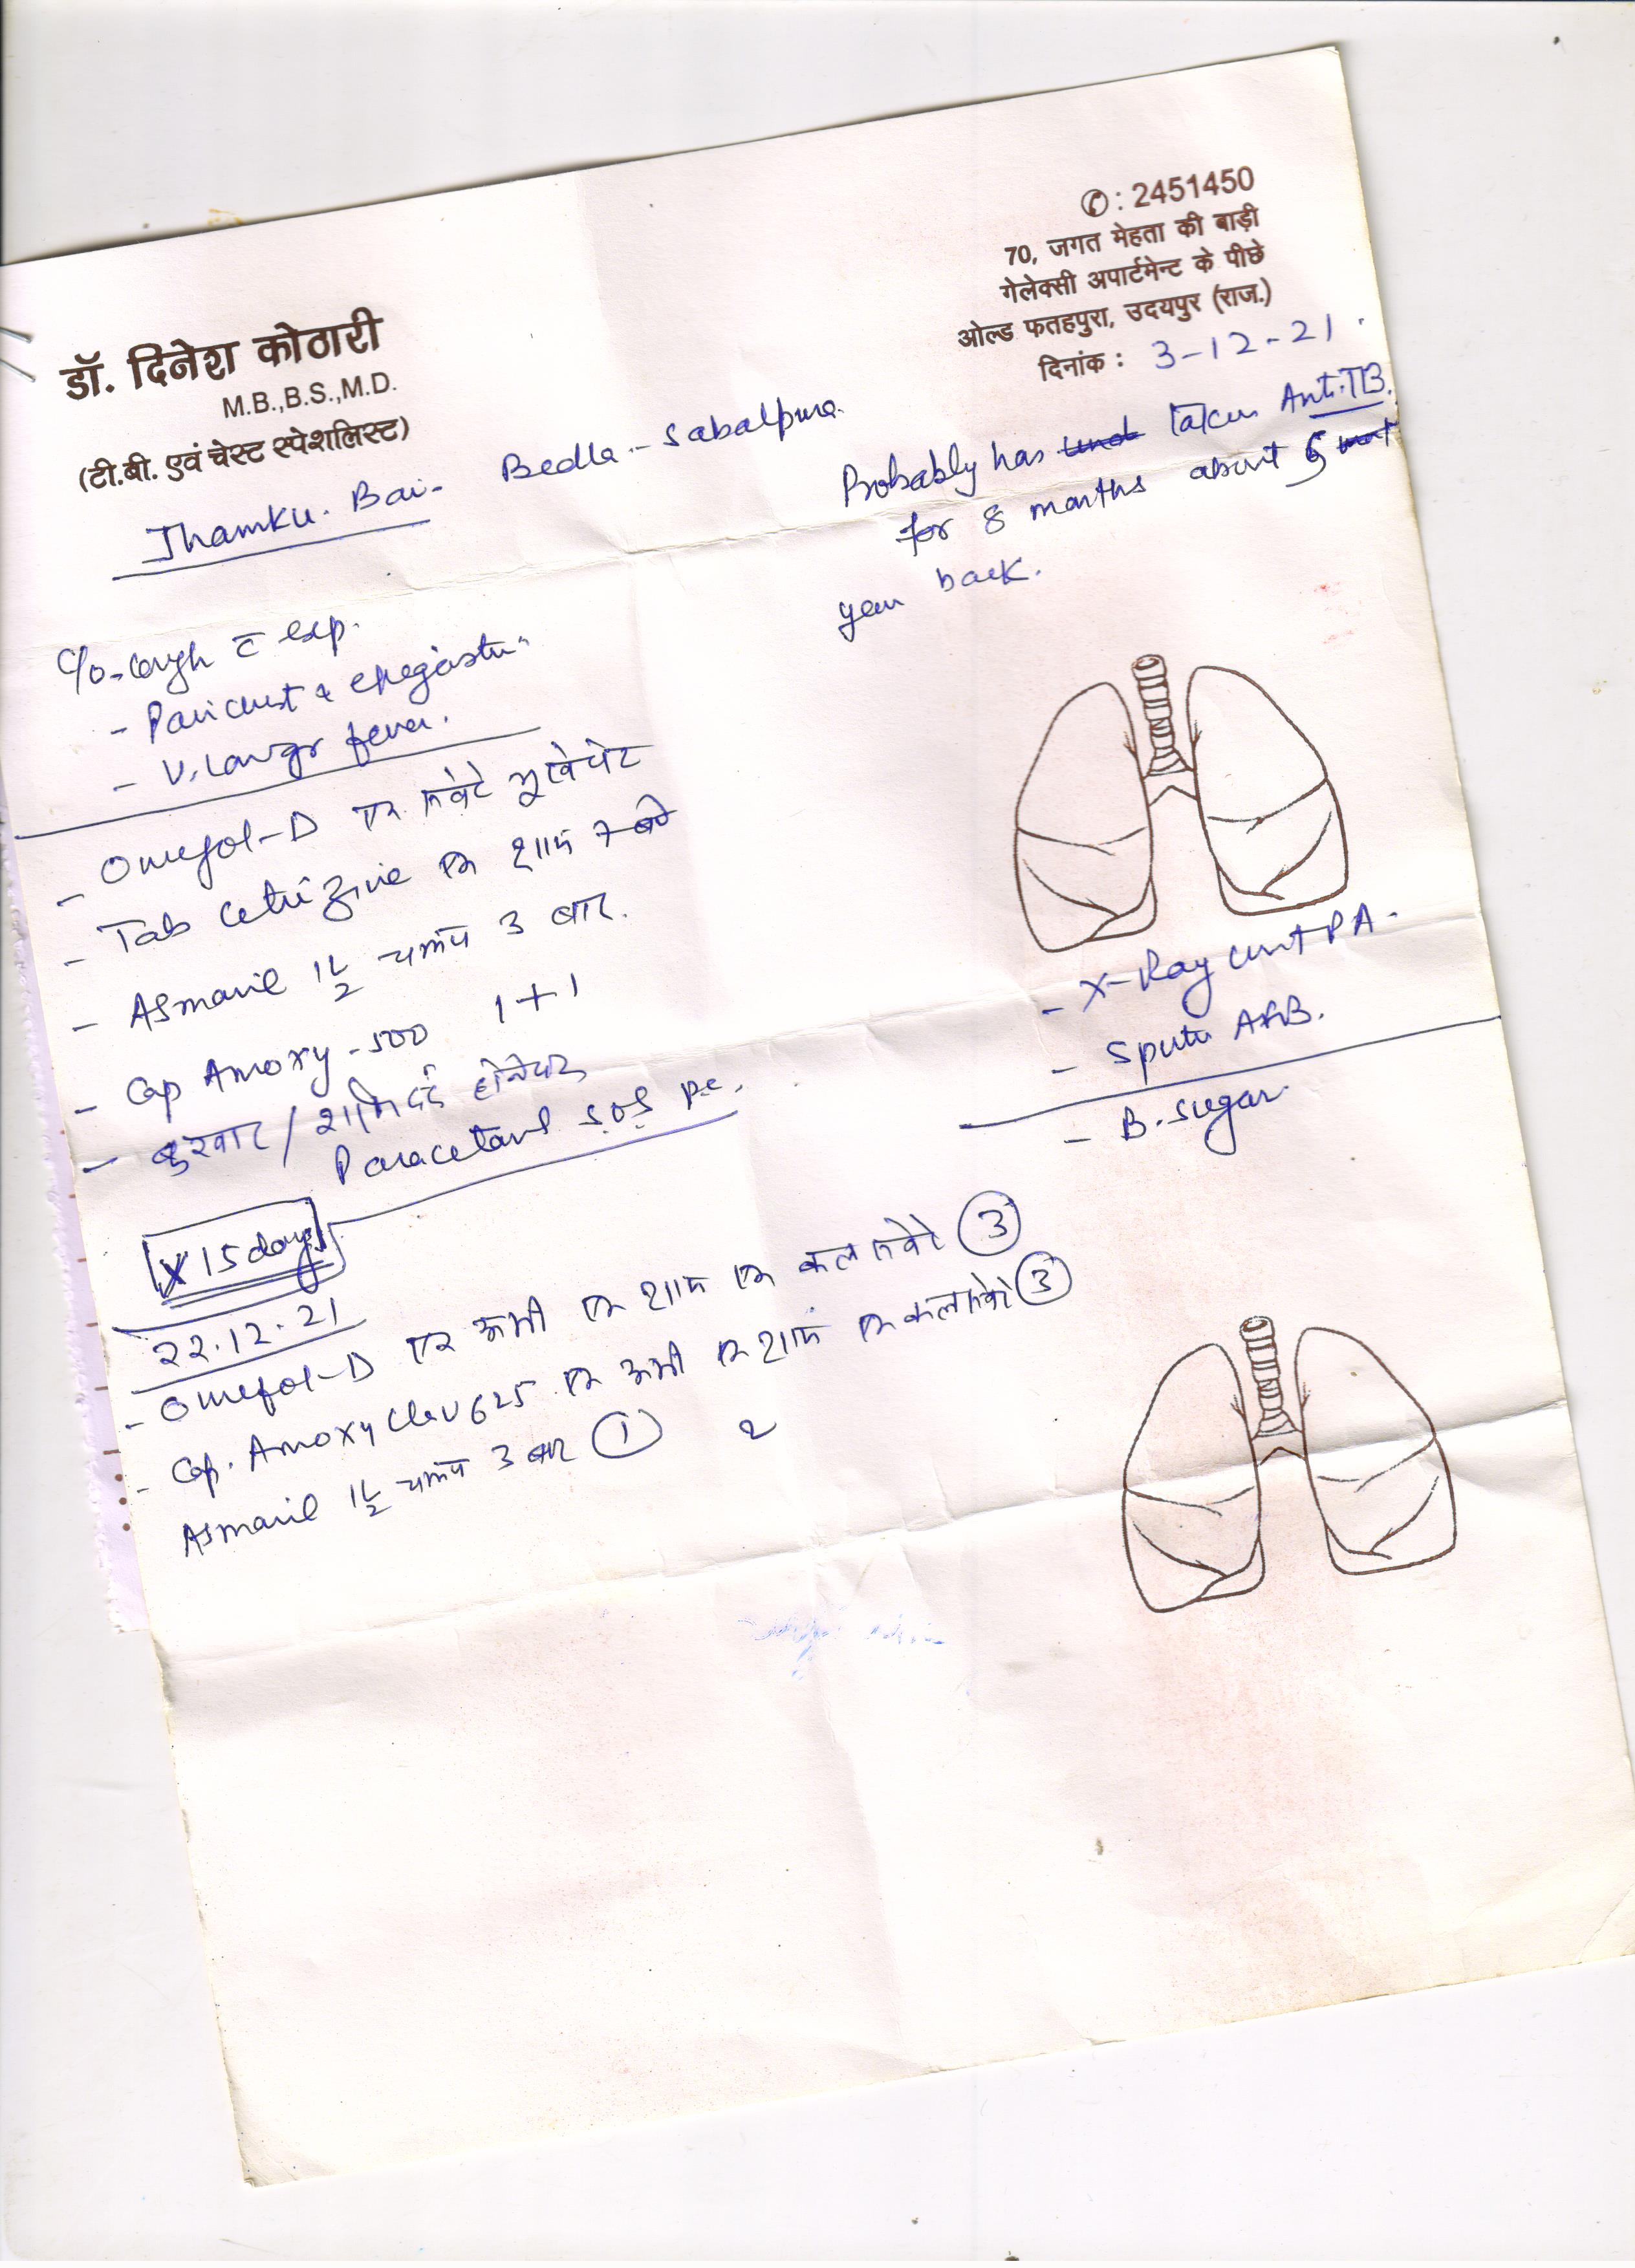 ✆: 2451450
70, जगत मेहता की बाड़ी
गेलेक्सी अपार्टमेन्ट के पीछे
ओल्ड फतहपुरा, उदयपुर (राज.)
दिनांक : 3-12-21.
डॉ. दिनेश कोठारी
M.B.,B.S.,M.D.
(टी.बी. एवं चेस्ट स्पेशलिस्ट)
Jhamku. Bai- Bedla.- Sabalpura.
Probably has taken Anti.TB.
for 8 months about 5
year back.
C/o- cough c̄ exp.
- Pain chest & epigastri
- fever.
- Omefol-D एक सवेरे भूखे पेट
- Tab Cetrizine एक शाम
- Asmaril 1½ चम्मच 3 बार.
- Cap Amoxy-500 1+1
- बुखार / दर्द होने पर
Paracetamol S.O.S p.c.
X 15 days
- X-Ray chest PA.
- Sputu AFB.
- B. Sugar
22.12.21
- Omefol-D एक अभी एक शाम एक कल सवेरे ③
- Cap. Amoxy Clav 625 एक अभी एक शाम एक कल सवेरे ③
Asmaril 1½ चम्मच 3 बार ①